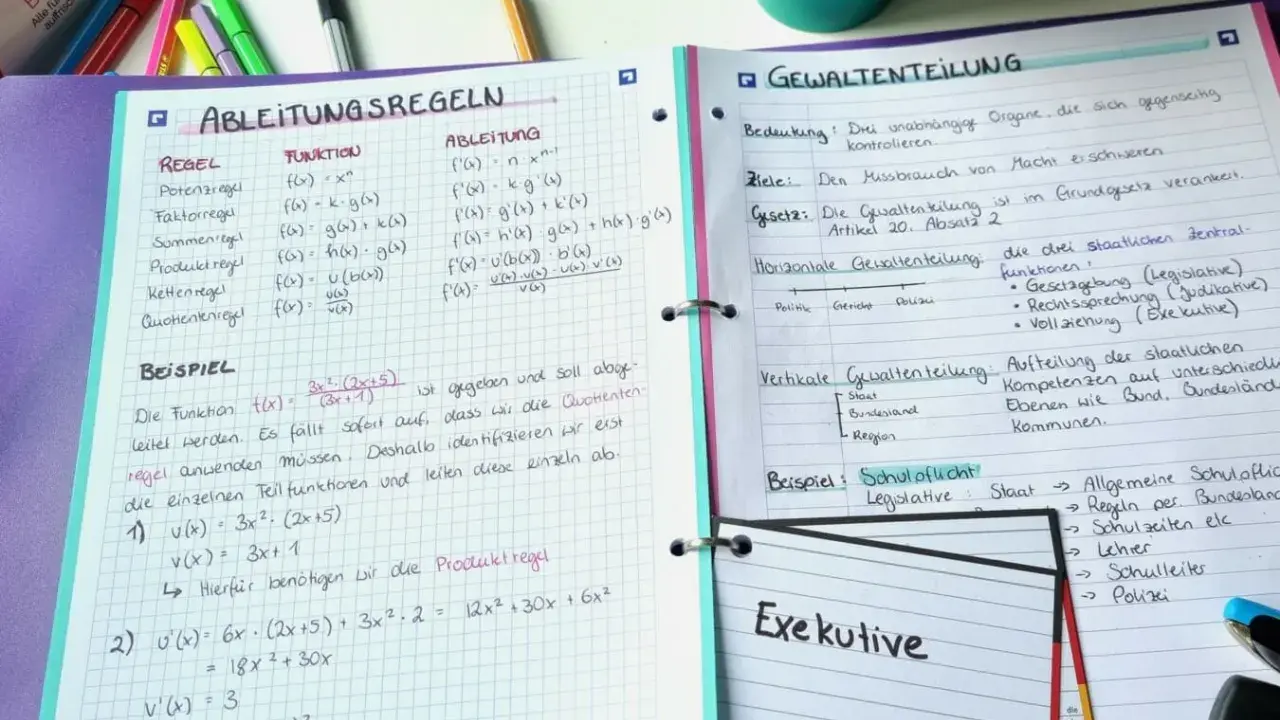 Alle fü
auffrisch
ABLEITUNGSREGELN
REGEL FUNKTION ABLEITUNG
Potenzregel f(x) = xⁿ f'(x) = n · xⁿ⁻¹
Faktorregel f(x) = k · g(x) f'(x) = k · g'(x)
Summenregel f(x) = g(x) + k(x) f'(x) = g'(x) + k'(x)
Produktregel f(x) = h(x) · g(x) f'(x) = h'(x) · g(x) + h(x) · g'(x)
Kettenregel f(x) = u(b(x)) f'(x) = u'(b(x)) · b'(x)
Quotientenregel f(x) = u(x)/v(x) f'(x) = u'(x) · v(x) - u(x) · v'(x)/v(x)
BEISPIEL
Die Funktion f(x) = 3x² · (2x+5)/(3x+1) ist gegeben und soll abge-
leitet werden. Es fällt sofort auf, dass wir die Quotienten-
regel anwenden müssen. Deshalb identifizieren wir erst
die einzelnen Teilfunktionen und leiten diese einzeln ab.
1) u(x) = 3x² · (2x+5)
v(x) = 3x + 1
↳ Hierfür benötigen wir die Produktregel
2) u'(x) = 6x · (2x+5) + 3x² · 2 = 12x² + 30x + 6x²
= 18x² + 30x
v'(x) = 3
GEWALTENTEILUNG
Bedeutung: Drei unabhängige Organe, die sich gegenseitig
kontrollieren.
Ziele: Den Missbrauch von Macht erschweren
Gesetz: Die Gewaltenteilung ist im Grundgesetz verankert.
Artikel 20, Absatz 2
Horizontale Gewaltenteilung: die drei staatlichen Zentral-
funktionen:
Politik Gericht Polizei
• Gesetzgebung (Legislative)
• Rechtssprechung (Judikative)
• Vollziehung (Exekutive)
Vertikale Gewaltenteilung: Aufteilung der staatlichen
Staat Kompetenzen auf unterschiedl
Bundesland Ebenen wie Bund, Bundesländ
Region Kommunen.
Beispiel: Schulpflicht
Legislative: Staat → Allgemeine Schulpflic
→ Regeln pes. Bundesland
→ Schulzeiten etc
→ Lehrer
→ Schulleiter
→ Polizei
Exekutive
die